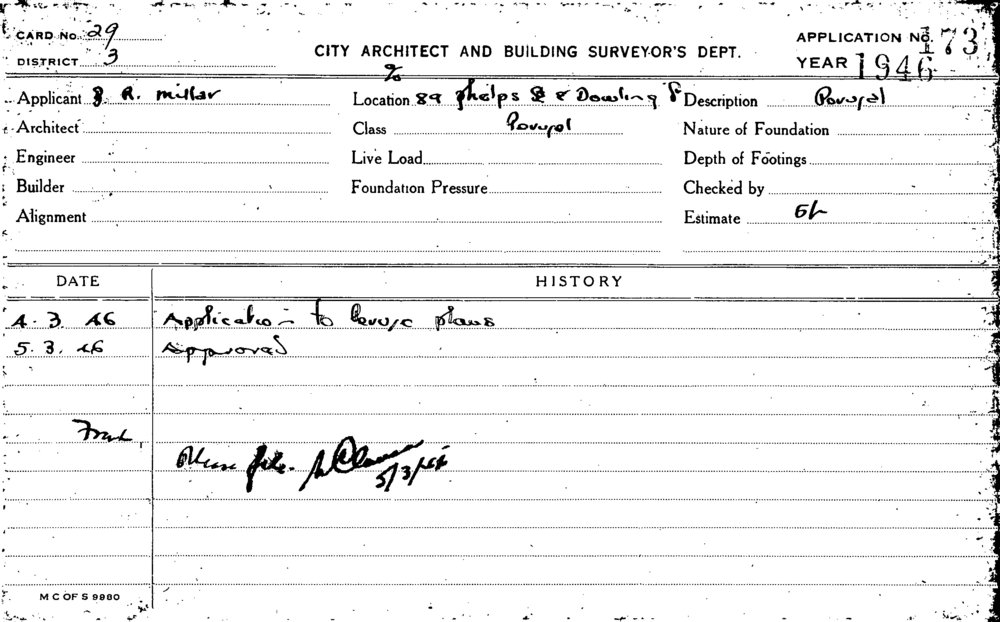 CARD NO. 29
DISTRICT 3
CITY ARCHITECT AND BUILDING SURVEYOR'S DEPT.
APPLICATION NO. 1/173
YEAR 1946
Applicant J. R. Millar
Location 89 Phelps St & Dowling St
Description Perusal
Architect
Class Perusal
Nature of Foundation
Engineer
Live Load
Depth of Footings
Builder
Foundation Pressure
Checked by
Alignment
Estimate
DATE
HISTORY
4. 3. 46 Application to peruse plans
5. 3. 46 Approved
Please file.
5/3/46
M C OF S 9980